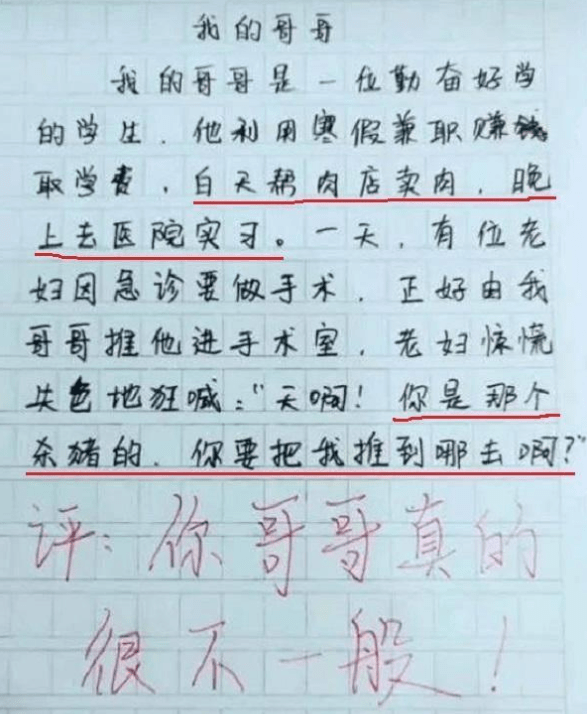 我的哥哥
我的哥哥是一位勤奋好学
的学生.他利用寒假兼职赚钱
取学费,白天帮肉店卖肉,晚
上去医院实习。一天,有位老
妇因急诊要做手术,正好由我
哥哥推他进手术室,老妇惊慌
失色地狂喊:“天啊!你是那个
杀猪的,你要把我推到哪去啊?”
评:你哥哥真的
很不一般!